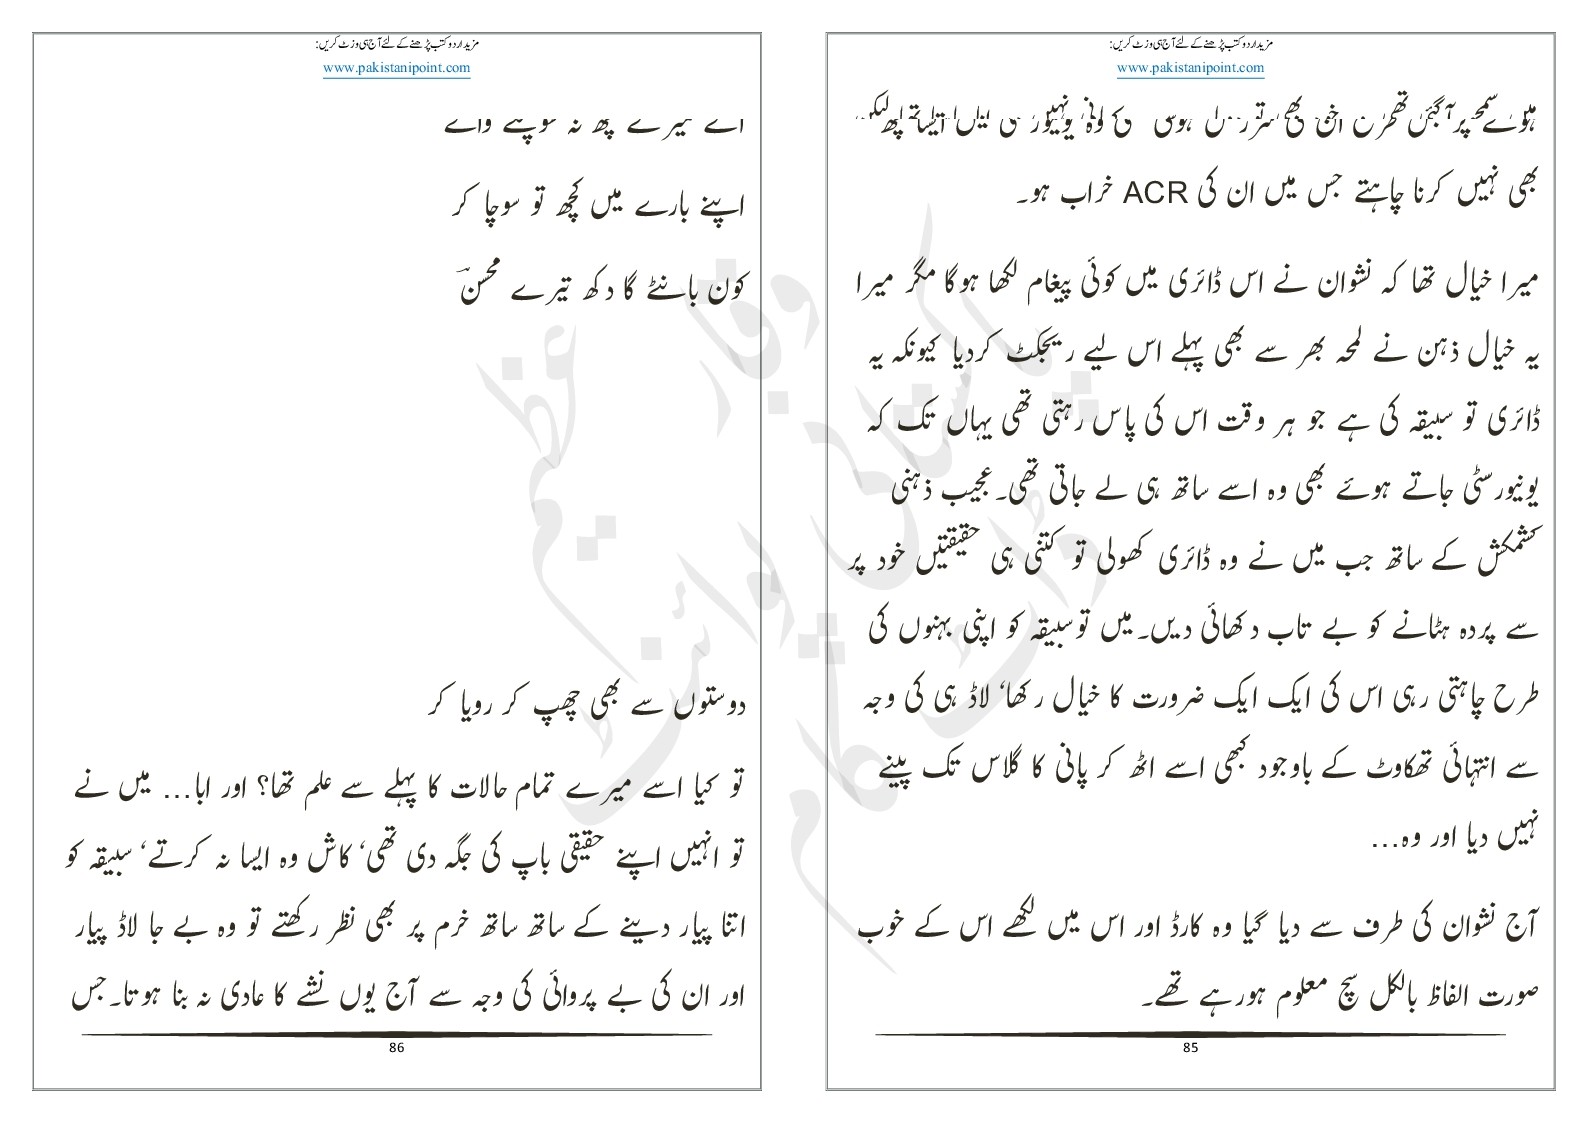 مزید اردو کتب پڑھنے کے لئے آج ہی وزٹ کریں:
www.pakistanipoint.com
بھی نہیں کرنا چاہتے جس میں ان کی ACR خراب ہو۔
میرا خیال تھا کہ نشوان نے اس ڈائری میں کوئی پیغام لکھا ہوگا مگر میرا
یہ خیال ذہن نے لمحہ بھر سے بھی پہلے اس لیے ریجکٹ کردیا کیونکہ یہ
ڈائری تو سبیقہ کی ہے جو ہر وقت اس کی پاس رہتی تھی یہاں تک کہ
یونیورسٹی جاتے ہوئے بھی وہ اسے ساتھ ہی لے جاتی تھی۔ عجیب ذہنی
کشمکش کے ساتھ جب میں نے وہ ڈائری کھولی تو کتنی ہی حقیقتیں خود پر
سے پردہ ہٹانے کو بے تاب دکھائی دیں۔ میں تو سبیقہ کو اپنی بہنوں کی
طرح چاہتی رہی اس کی ایک ایک ضرورت کا خیال رکھا‘ لاڈ ہی کی وجہ
سے انتہائی تھکاوٹ کے باوجود کبھی اسے اٹھ کر پانی کا گلاس تک پینے
نہیں دیا اور وہ...
آج نشوان کی طرف سے دیا گیا وہ کارڈ اور اس میں لکھے اس کے خوب
صورت الفاظ بالکل سچ معلوم ہورہے تھے۔
85
مزید اردو کتب پڑھنے کے لئے آج ہی وزٹ کریں:
www.pakistanipoint.com
اپنے بارے میں کچھ تو سوچا کر
کون بانٹے گا دکھ تیرے محسنؔ
دوستوں سے بھی چھپ کر رویا کر
تو کیا اسے میرے تمام حالات کا پہلے سے علم تھا؟ اور ابا... میں نے
تو انہیں اپنے حقیقی باپ کی جگہ دی تھی‘ کاش وہ ایسا نہ کرتے‘ سبیقہ کو
اتنا پیار دینے کے ساتھ ساتھ خرم پر بھی نظر رکھتے تو وہ بے جا لاڈ پیار
اور ان کی بے پروائی کی وجہ سے آج یوں نشے کا عادی نہ بنا ہوتا۔ جس
86
پاکستانی پوائنٹ ڈاٹ کام